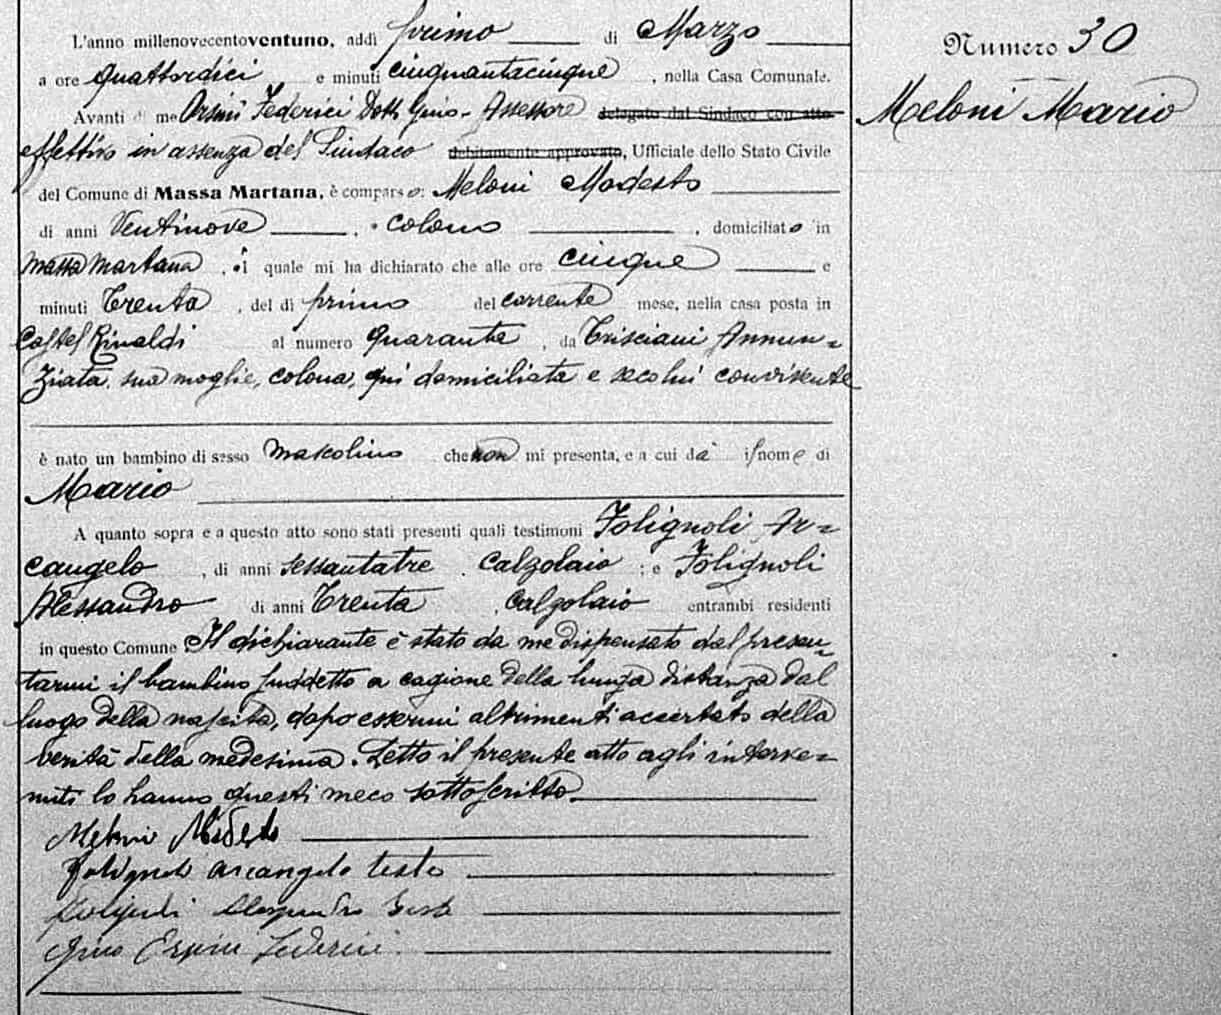 Numero 30
Meloni Mario
L'anno millenovecentoventuno, addì primo di Marzo
a ore quattordici e minuti cinquantacinque, nella Casa Comunale.
Avanti di me Orsini Federici Dott Gino - Assessore delegato dal Sindaco con atto
effettivo in assenza del Sindaco debitamente approvato, Ufficiale dello Stato Civile
del Comune di Massa Martana, è comparso: Meloni Modesto
di anni Ventinove, colono, domiciliato in
Massa Martana, il quale mi ha dichiarato che alle ore cinque e
minuti Trenta, del dì primo del corrente mese, nella casa posta in
Castel Rinaldi al numero quaranta, da Trisciani Annun=
ziata, sua moglie, colona, qui domiciliata e seco lui convivente
è nato un bambino di sesso mascolino che non mi presenta, e a cui dà il nome di
Mario
A quanto sopra e a questo atto sono stati presenti quali testimoni Folignoli Ar=
cangelo, di anni sessantatre, Calzolaio; e Folignoli
Alessandro di anni Trenta, Calzolaio entrambi residenti
in questo Comune. Il dichiarante è stato da me dispensato dal presen=
tarmi il bambino suddetto a cagione della lunga distanza dal
luogo della nascita, dopo essermi altrimenti accertato della
verità della medesima. Letto il presente atto agli interve=
nuti lo hanno questi meco sottoscritto.
Meloni Modesto
Folignoli arcangelo testo
Folignoli Alessandro Teste
Gino Orsini Federici.